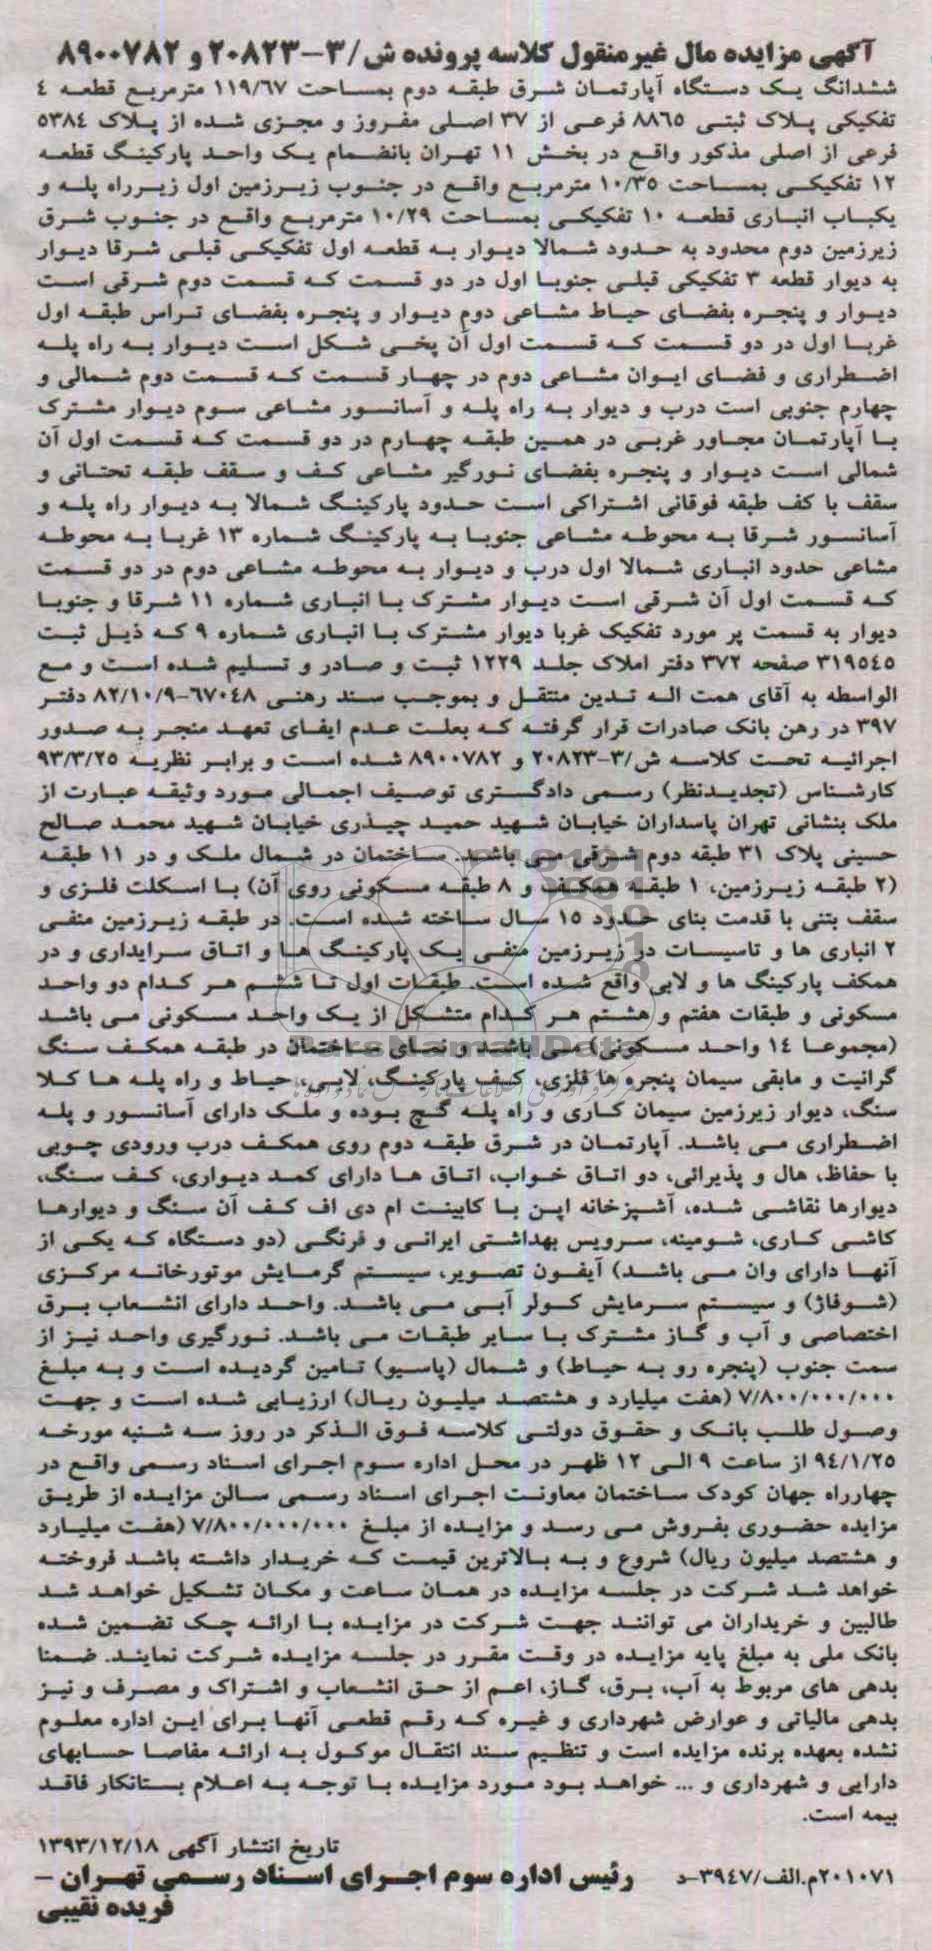 آگهی مزایده مال غیرمنقول کلاسه پرونده ش/۳-۲۰۸۲۳ و ۸۹۰۰۷۸۲
ششدانگ یک دستگاه آپارتمان شرق طبقه دوم بمساحت ۱۱۹/۶۷ مترمربع قطعه ۴
تفکیکی پلاک ثبتی ۸۸۶۵ فرعی از ۳۷ اصلی مفروز و مجزی شده از پلاک ۵۳۸۴
فرعی از اصلی مذکور واقع در بخش ۱۱ تهران بانضمام یک واحد پارکینگ قطعه
۱۲ تفکیکی بمساحت ۱۰/۳۵ مترمربع واقع در جنوب زیرزمین اول زیرراه پله و
یکباب انباری قطعه ۱۰ تفکیکی بمساحت ۱۰/۲۹ مترمربع واقع در جنوب شرق
زیرزمین دوم محدود به حدود شمالا دیوار به قطعه اول تفکیکی قبلی شرقا دیوار
به دیوار قطعه ۳ تفکیکی قبلی جنوبا اول در دو قسمت که قسمت دوم شرقی است
دیوار و پنجره بفضای حیاط مشاعی دوم دیوار و پنجره بفضای تراس طبقه اول
غربا اول در دو قسمت که قسمت اول آن پخی شکل است دیوار به راه پله
اضطراری و فضای ایوان مشاعی دوم در چهار قسمت که قسمت دوم شمالی و
چهارم جنوبی است درب و دیوار به راه پله و آسانسور مشاعی سوم دیوار مشترک
با آپارتمان مجاور غربی در همین طبقه چهارم در دو قسمت که قسمت اول آن
شمالی است دیوار و پنجره بفضای نورگیر مشاعی کف و سقف طبقه تحتانی و
سقف با کف طبقه فوقانی اشتراکی است حدود پارکینگ شمالا به دیوار راه پله و
آسانسور شرقا به محوطه مشاعی جنوبا به پارکینگ شماره ۱۳ غربا به محوطه
مشاعی حدود انباری شمالا اول درب و دیوار به محوطه مشاعی دوم در دو قسمت
که قسمت اول آن شرقی است دیوار مشترک با انباری شماره ۱۱ شرقا و جنوبا
دیوار به قسمت پر مورد تفکیک غربا دیوار مشترک با انباری شماره ۹ که ذیل ثبت
۳۱۹۵۴۵ صفحه ۳۷۲ دفتر املاک جلد ۱۲۲۹ ثبت و صادر و تسلیم شده است و مع
الواسطه به آقای همت اله تدین منتقل و بموجب سند رهنی ۶۷۰۴۸-۸۲/۱۰/۹ دفتر
۳۹۷ در رهن بانک صادرات قرار گرفته که بعلت عدم ایفای تعهد منجر به صدور
اجرائیه تحت کلاسه ش/۳-۲۰۸۲۳ و ۸۹۰۰۷۸۲ شده است و برابر نظریه ۹۳/۳/۲۵
کارشناس (تجدیدنظر) رسمی دادگستری توصیف اجمالی مورد وثیقه عبارت از
ملک بنشانی تهران پاسداران خیابان شهید حمید چیذری خیابان شهید محمد صالح
حسینی پلاک ۳۱ طبقه دوم شرقی می باشد. ساختمان در شمال ملک و در ۱۱ طبقه
(۲ طبقه زیرزمین، ۱ طبقه همکف و ۸ طبقه مسکونی روی آن) با اسکلت فلزی و
سقف بتنی با قدمت بنای حدود ۱۵ سال ساخته شده است. در طبقه زیرزمین منفی
۲ انباری ها و تاسیسات در زیرزمین منفی یک پارکینگ ها و اتاق سرایداری و در
همکف پارکینگ ها و لابی واقع شده است. طبقات اول تا ششم هر کدام دو واحد
مسکونی و طبقات هفتم و هشتم هر کدام متشکل از یک واحد مسکونی می باشد
(مجموعا ۱۴ واحد مسکونی) می باشد. و نمای ساختمان در طبقه همکف سنگ
گرانیت و مابقی سیمان پنجره ها فلزی، کف پارکینگ، لابی، حیاط و راه پله ها کلا
سنگ، دیوار زیرزمین سیمان کاری و راه پله گچ بوده و ملک دارای آسانسور و پله
اضطراری می باشد. آپارتمان در شرق طبقه دوم روی همکف درب ورودی چوبی
با حفاظ، هال و پذیرائی، دو اتاق خواب، اتاق ها دارای کمد دیواری، کف سنگ،
دیوارها نقاشی شده، آشپزخانه اپن با کابینت ام دی اف کف آن سنگ و دیوارها
کاشی کاری، شومینه، سرویس بهداشتی ایرانی و فرنگی (دو دستگاه که یکی از
آنها دارای وان می باشد) آیفون تصویر، سیستم گرمایش موتورخانه مرکزی
(شوفاژ) و سیستم سرمایش کولر آبی می باشد. واحد دارای انشعاب برق
اختصاصی و آب و گاز مشترک با سایر طبقات می باشد. نورگیری واحد نیز از
سمت جنوب (پنجره رو به حیاط) و شمال (پاسیو) تامین گردیده است و به مبلغ
۷/۸۰۰/۰۰۰/۰۰۰ (هفت میلیارد و هشتصد میلیون ریال) ارزیابی شده است و جهت
وصول طلب بانک و حقوق دولتی کلاسه فوق الذکر در روز سه شنبه مورخه
۹۴/۱/۲۵ از ساعت ۹ الی ۱۲ ظهر در محل اداره سوم اجرای اسناد رسمی واقع در
چهارراه جهان کودک ساختمان معاونت اجرای اسناد رسمی سالن مزایده از طریق
مزایده حضوری بفروش می رسد و مزایده از مبلغ ۷/۸۰۰/۰۰۰/۰۰۰ (هفت میلیارد
و هشتصد میلیون ریال) شروع و به بالاترین قیمت که خریدار داشته باشد فروخته
خواهد شد شرکت در جلسه مزایده در همان ساعت و مکان تشکیل خواهد شد
طالبین و خریداران می توانند جهت شرکت در مزایده با ارائه چک تضمین شده
بانک ملی به مبلغ پایه مزایده در وقت مقرر در جلسه مزایده شرکت نمایند. ضمنا
بدهی های مربوط به آب، برق، گاز، اعم از حق انشعاب و اشتراک و مصرف و نیز
بدهی مالیاتی و عوارض شهرداری و غیره که رقم قطعی آنها برای این اداره معلوم
نشده بعهده برنده مزایده است و تنظیم سند انتقال موکول به ارائه مفاصا حسابهای
دارایی و شهرداری و ... خواهد بود مورد مزایده با توجه به اعلام بستانکار فاقد
بیمه است.
تاریخ انتشار آگهی ۱۳۹۳/۱۲/۱۸
۲۰۱۰۷۱م.الف/۳۹۴۷-د رئیس اداره سوم اجرای اسناد رسمی تهران -
فریده نقیبی
ParsNamadData